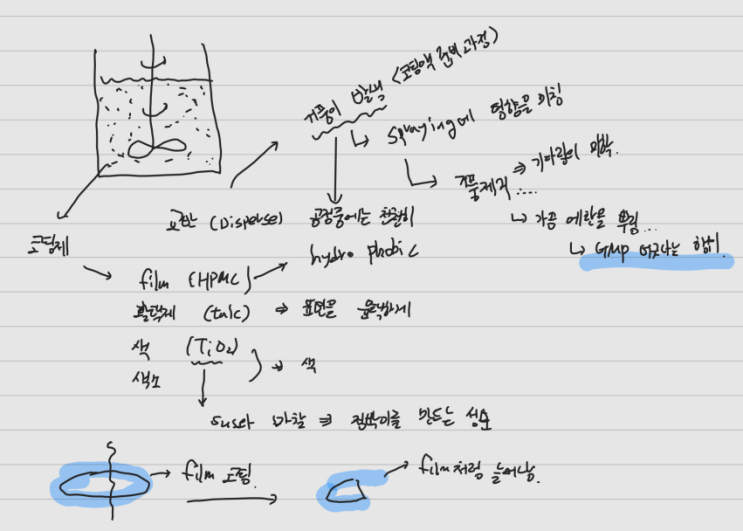 거품이 발생 (코팅액 준비 과정)
↳ spraying에 영향을 미침
↳ 거품제거 ⇒ 기다림의 미학.
↳ 가끔 에탄올 뿌림...
↳ GMP 어긋나는 행위.
교반 (Disperse)
공정중에는 천천히
코팅제
hydro phobic
film (HPMC)
활택제 (talc) ⇒ 표면을 윤택하게
색 (TiO2)
색소
→ 색
sus와 마찰 ⇒ 점박이를 만드는 성순
→ film 코팅.
→ film처럼 늘어남.